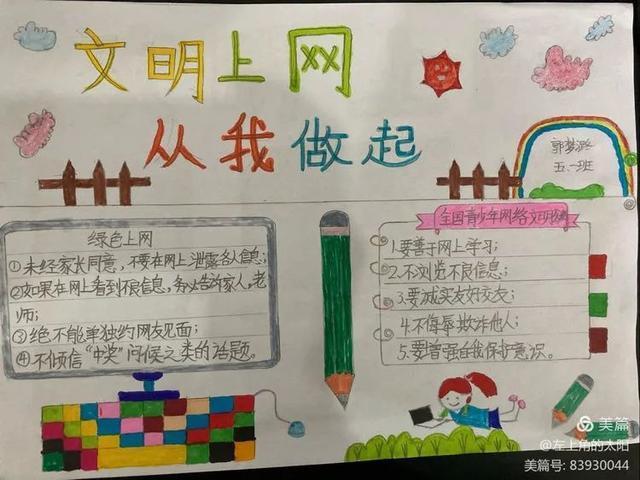 文明上网
从我做起
郭梦潞
五.一班
绿色上网
①未经家长同意，不要在网上泄露个人信息；
②如果在网上看到不良信息，务必告诉家人，老
师；
③绝不能单独约网友见面；
④不倾信“中奖”问候之类的话题。
全国青少年网络文明公约
1.要善于网上学习；
2.不浏览不良信息；
3.要诚实友好交友；
4.不侮辱欺诈他人；
5.要增强自我保护意识。
美篇
@左上角的太阳
美篇号: 83930044